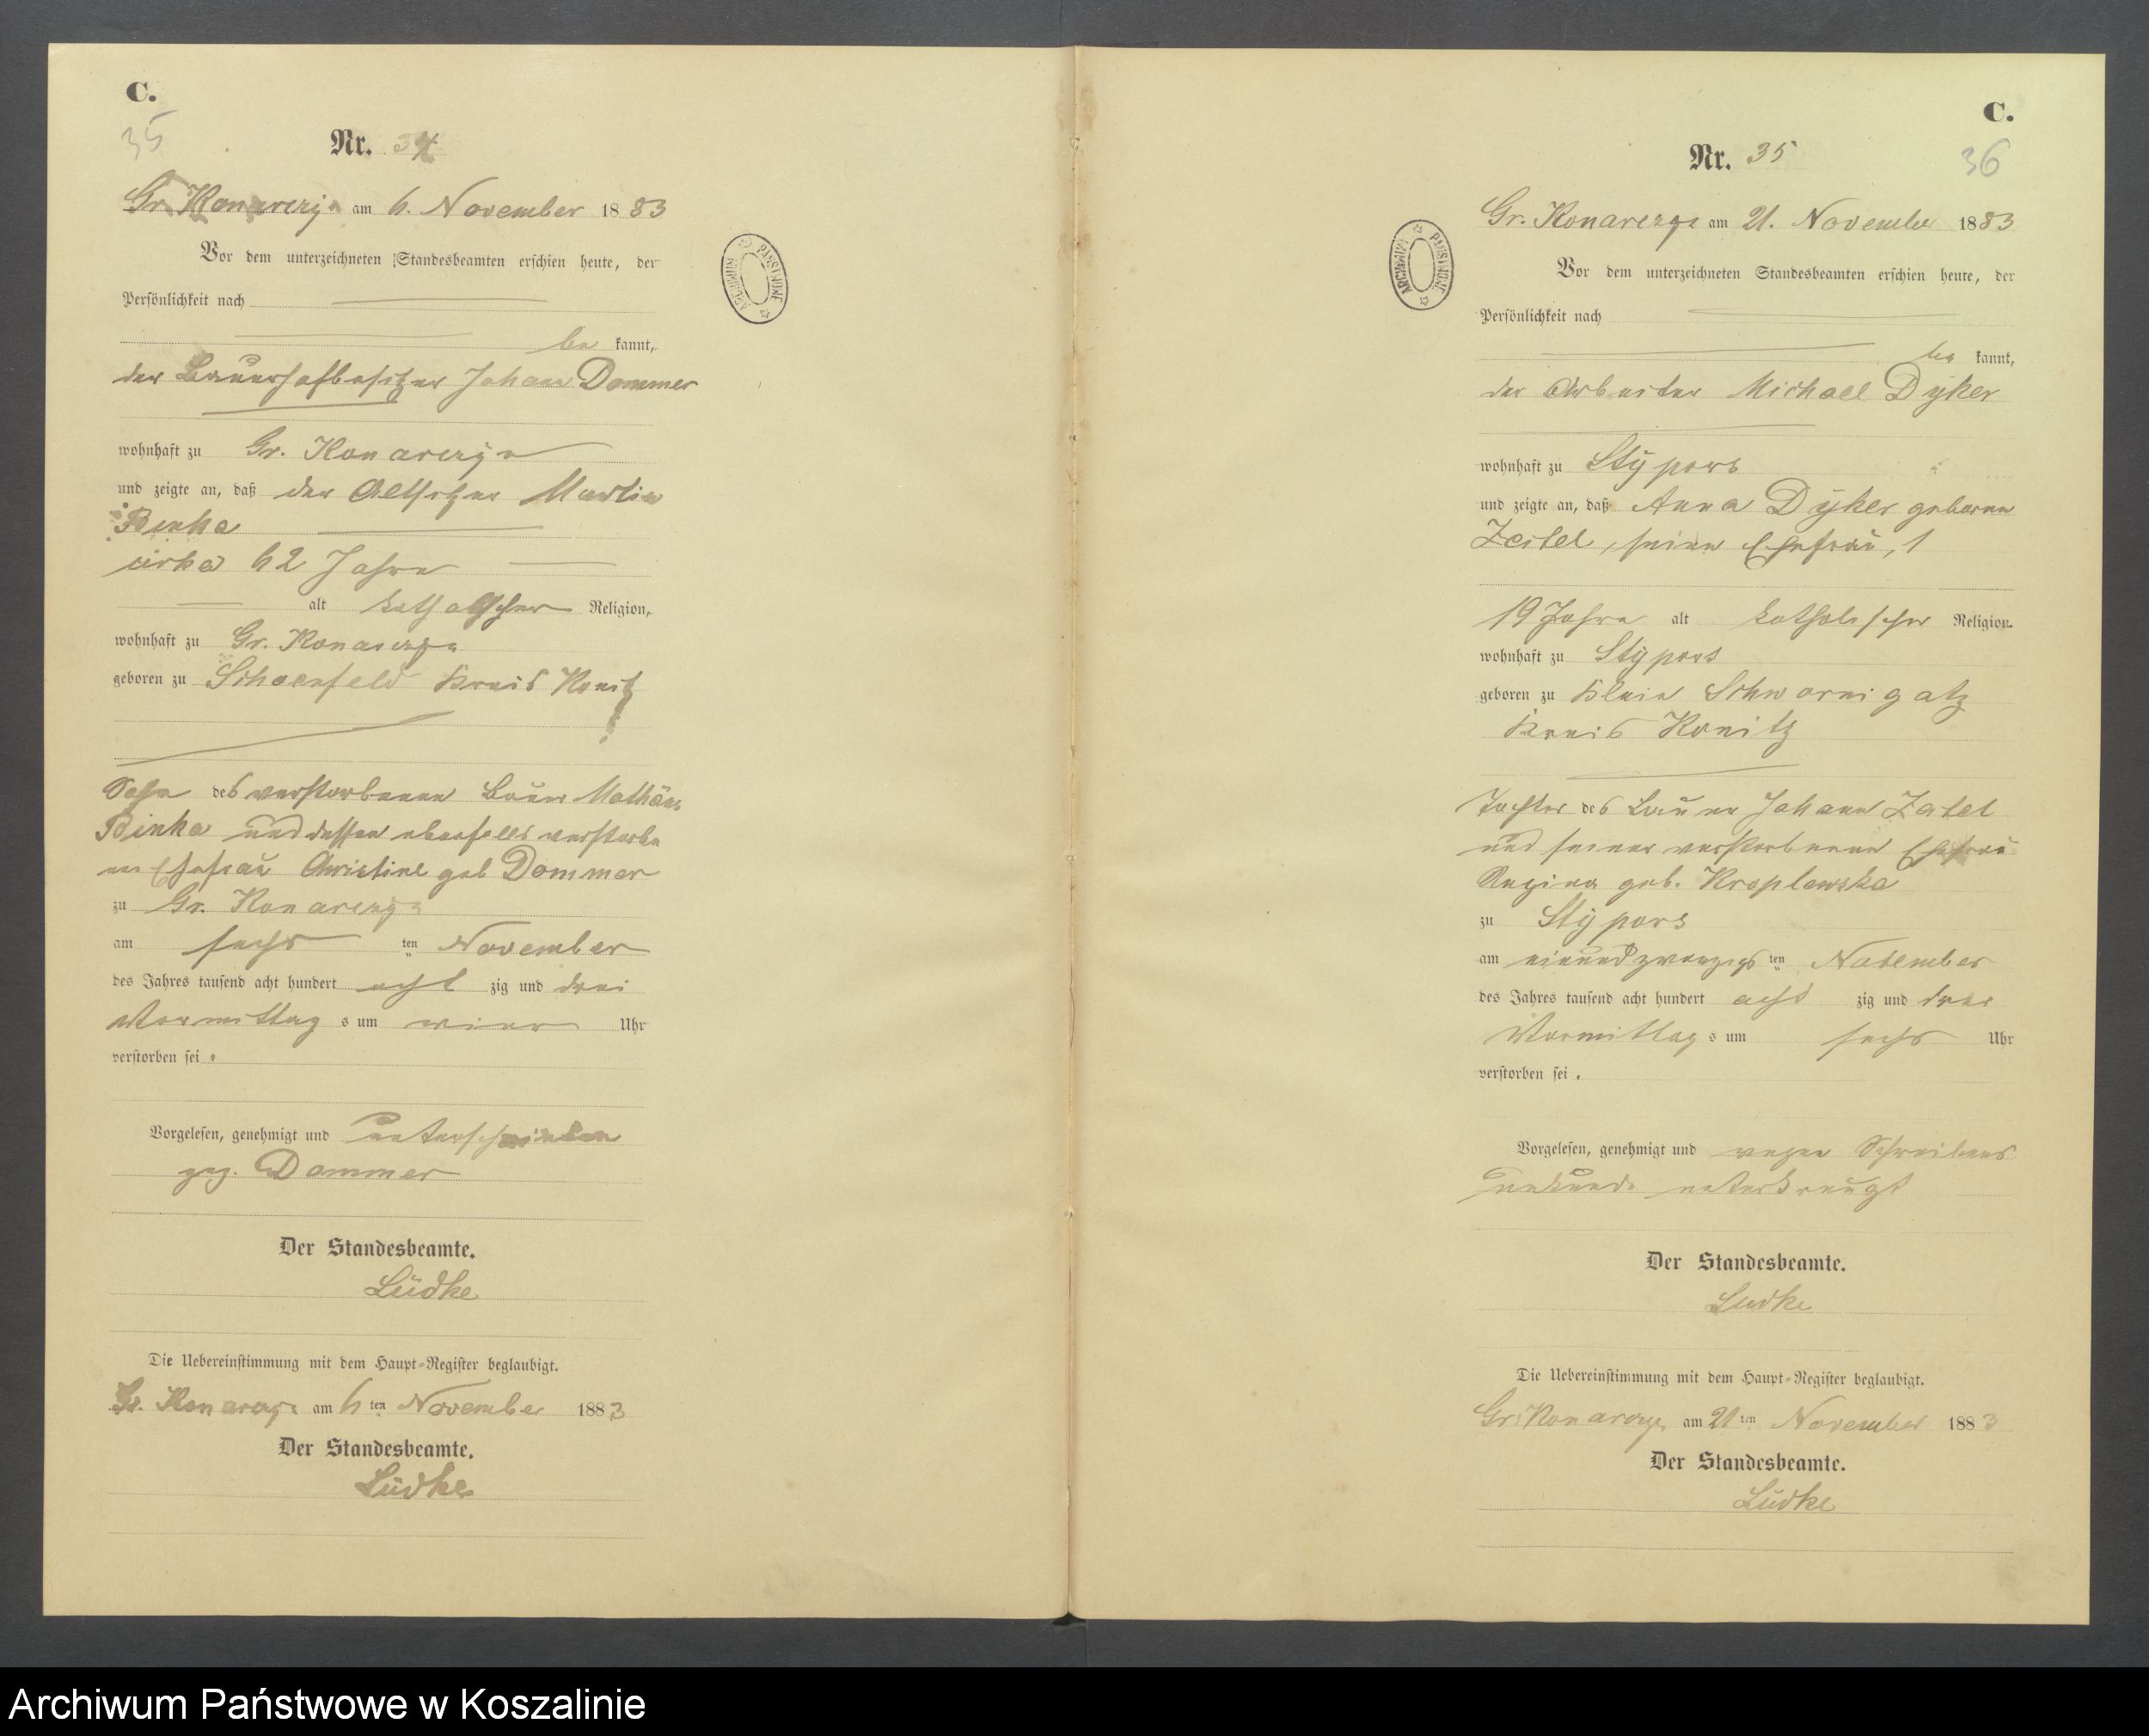 C.
35
Nr. 34
Gr. Konarczyn am 6. November 1883
Vor dem unterzeichneten Standesbeamten erschien heute, der
Persönlichkeit nach
be kannt,
der Bauerhofbesitzer Johann Dommer
wohnhaft zu Gr. Konarczyn
und zeigte an, daß der Altsitzer Martin
Binka
cirka 62 Jahre
alt katholischer Religion,
wohnhaft zu Gr. Konarczyn
geboren zu Schoenfeld Kreis Konitz
Sohn des verstorbenen Bauer Mathäus
Binka und dessen ebenfalls verstorbe
nen Ehefrau Christine geb Dommer
zu Gr. Konarczyn
am sechs ten November
des Jahres tausend acht hundert acht zig und drei
Vormittag s um vier Uhr
verstorben sei.
Vorgelesen, genehmigt und unterschrieben
gez. Dommer
Der Standesbeamte.
Lüdke
Die Uebereinstimmung mit dem Haupt-Register beglaubigt.
Gr. Konarczyn am 6 ten November 1883
Der Standesbeamte.
Lüdke
C.
36
Nr. 35
Gr. Konarczyn am 21. November 1883
Vor dem unterzeichneten Standesbeamten erschien heute, der
Persönlichkeit nach
be kannt,
der Arbeiter Michael Dyker
wohnhaft zu Stypors
und zeigte an, daß Anna Dyker geborene
seine Ehefrau,
19 Jahre alt katholischer Religion
wohnhaft zu Stypors
geboren zu Klein Schwornigatz
Kreis Konitz
Tochter des Bauer Johann
und seiner verstorbenen Ehefrau
Regina geb. Kroplewska
zu Stypors
am einundzwanzigs ten November
des Jahres tausend acht hundert acht zig und drei
Vormittag s um sechs Uhr
verstorben sei.
Vorgelesen, genehmigt und wegen Schreibens
unkunde unterkreuzt
Der Standesbeamte.
Lüdke
Die Uebereinstimmung mit dem Haupt-Register beglaubigt.
Gr. Konarczyn am 21 ten November 1883
Der Standesbeamte.
Lüdke
ARCHIWUM PAŃSTWOWE
ARCHIWUM PAŃSTWOWE
Archiwum Państwowe w Koszalinie